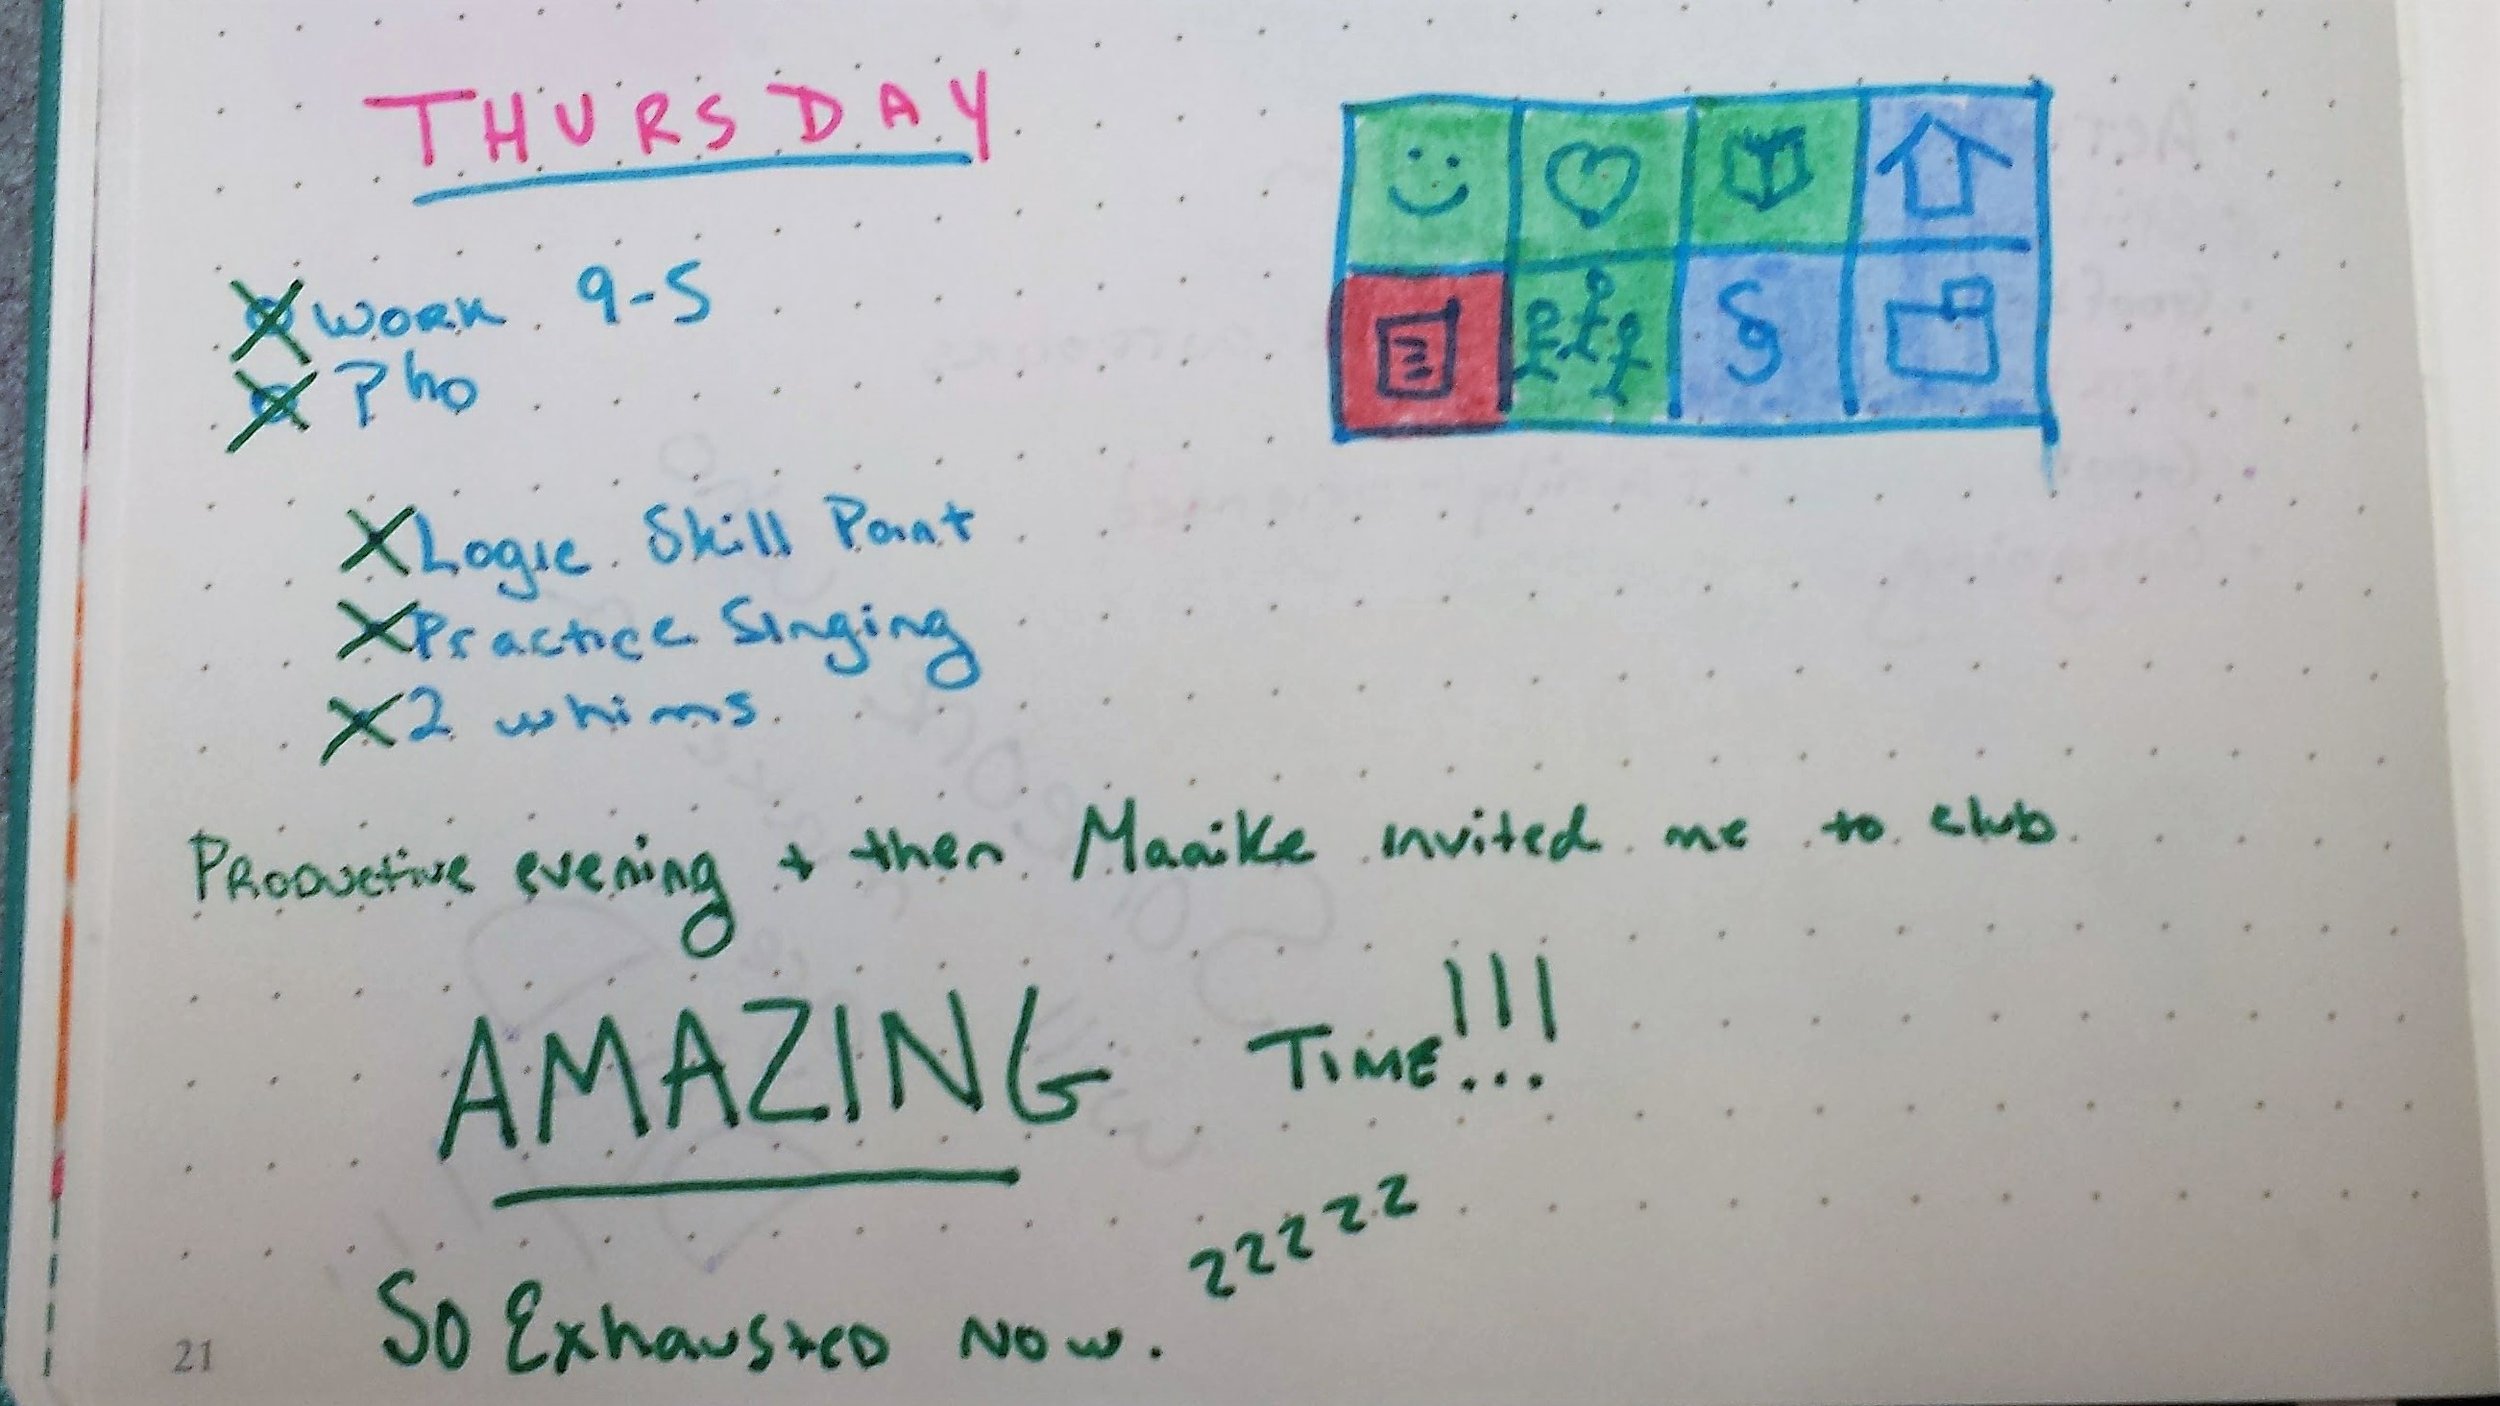 THURSDAY
X Work 9-5
X Pho
X Logic Skill Point
X Practice Singing
X 2 whims
Productive evening + then Maaike invited me to club.
AMAZING TIME!!!
So Exhausted Now. zzzzz
21